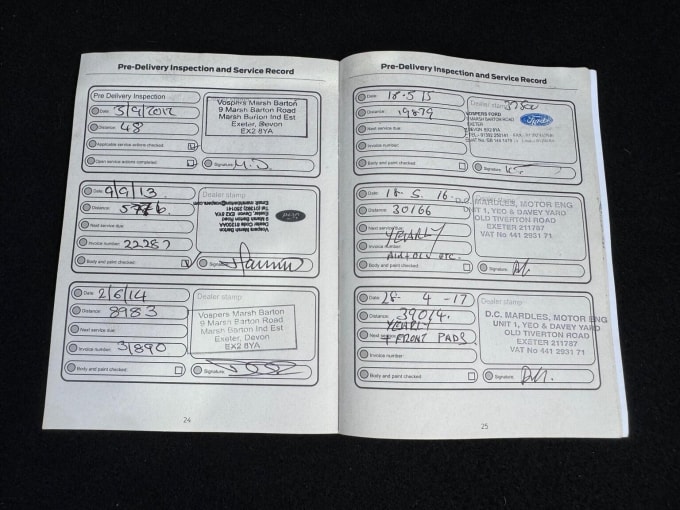 Pre-Delivery Inspection and Service Record
Pre Delivery Inspection
Date: 3/9/2012
Distance: 48
Applicable service actions checked:
Open service actions completed:
Vospers Marsh Barton
9 Marsh Barton Road
Marsh Barton Ind Est
Exeter, Devon
EX2 8YA
Signature:
Date: 9/9/13.
Distance: 5776.
Next service due:
Invoice number: 22287
Body and paint checked:
Dealer stamp
Vospers Marsh Barton
9 Marsh Barton Road
Exeter, Devon
EX2 8YA
Signature:
Date: 2/6/14
Distance: 8983
Next service due:
Invoice number: 31890
Body and paint checked:
Dealer stamp
Vospers Marsh Barton
9 Marsh Barton Road
Marsh Barton Ind Est
Exeter, Devon
EX2 8YA
Signature:
24
Pre-Delivery Inspection and Service Record
Date: 18-5-15
Distance: 19879
Next service due:
Invoice number:
Body and paint checked:
Dealer stamp
VOSPERS FORD
MARSH BARTON ROAD
EXETER
DEVON EX2 8YA
Ford
Signature:
Date: 18. 5. 16.
Distance: 30166
Next service due:
YEARLY
Invoice number:
Body and paint checked:
Dealer stamp
D.C. MARDLES, MOTOR ENG
UNIT 1, YEO & DAVEY YARD
OLD TIVERTON ROAD
EXETER 211787
VAT No 441 2931 71
Signature:
Date: 28 - 4 - 17
Distance: 39014.
YEARLY
Next
+ FRONT PADS
Invoice number:
Body and paint checked:
Dealer stamp
D.C. MARDLES, MOTOR ENG
UNIT 1, YEO & DAVEY YARD
OLD TIVERTON ROAD
EXETER 211787
VAT No 441 2931 71
Signature:
25